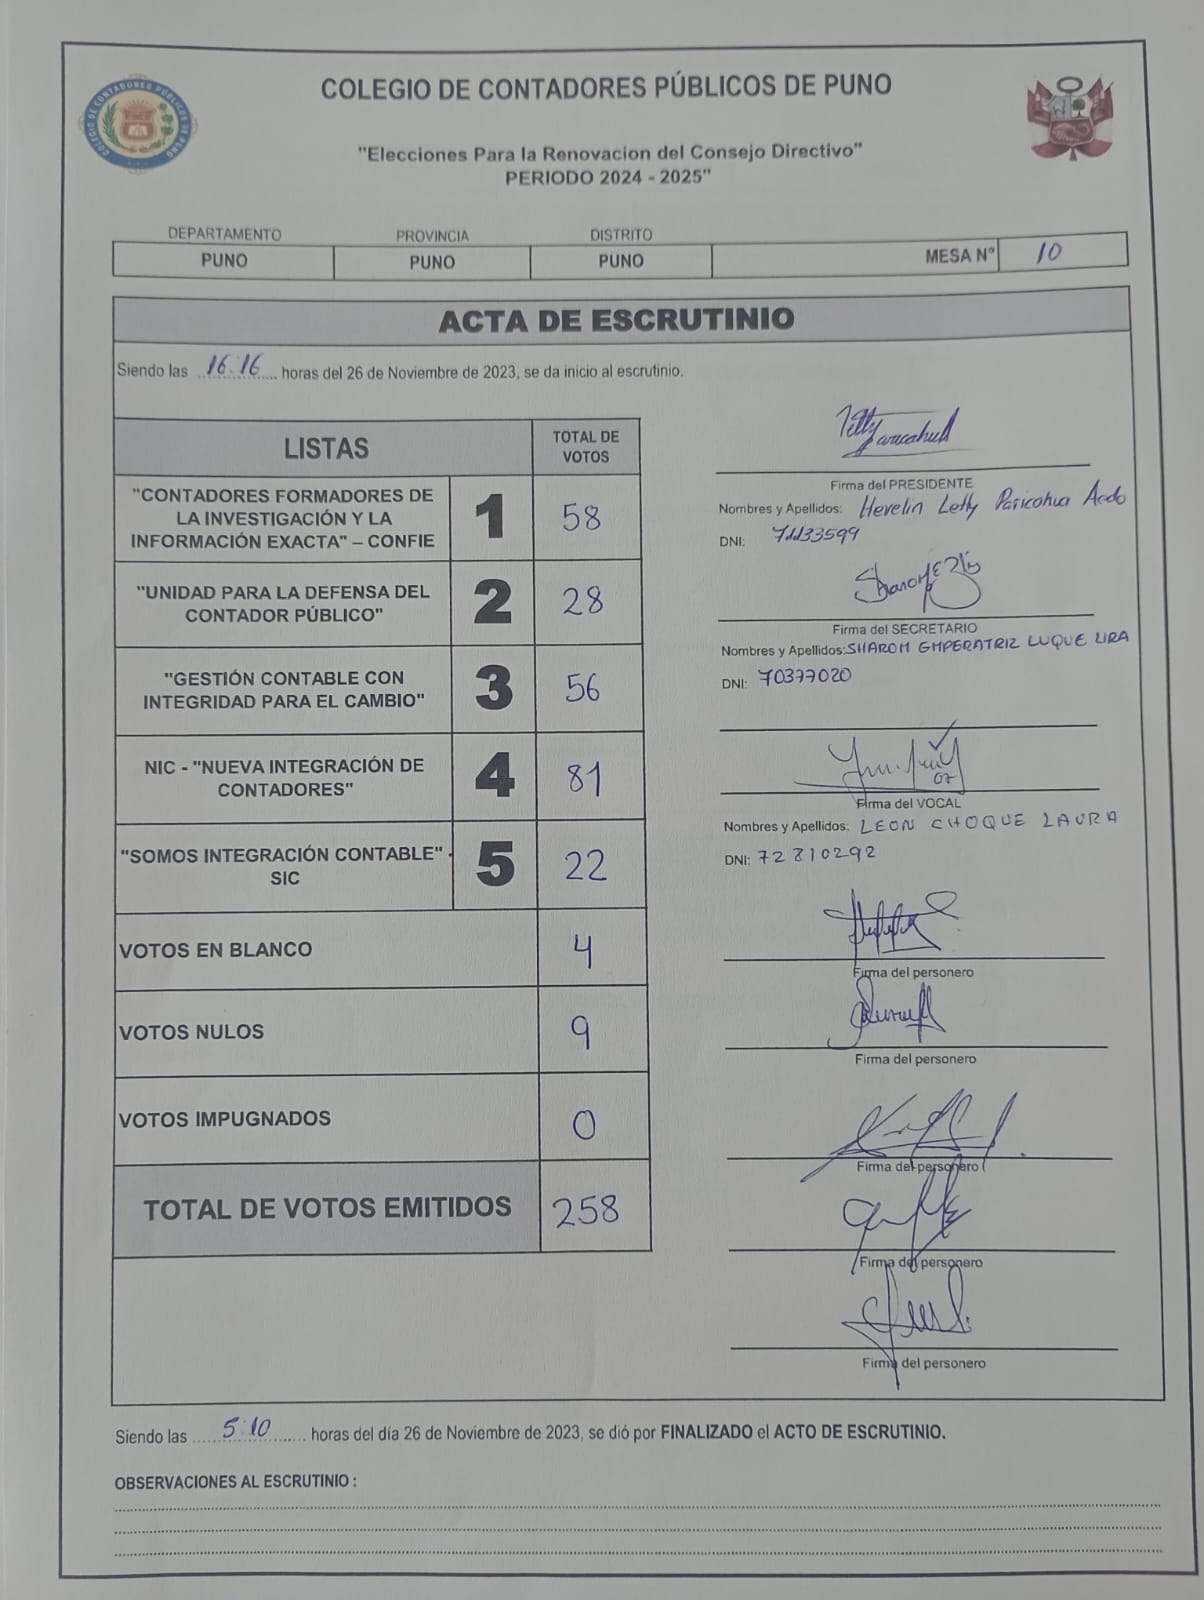 COLEGIO DE CONTADORES PÚBLICOS DE PUNO
"Elecciones Para la Renovacion del Consejo Directivo"
PERIODO 2024 - 2025"
DEPARTAMENTO PROVINCIA DISTRITO
PUNO PUNO PUNO MESA N° 10
ACTA DE ESCRUTINIO
Siendo las 16:16 horas del 26 de Noviembre de 2023, se da inicio al escrutinio.
LISTAS TOTAL DE
VOTOS
"CONTADORES FORMADORES DE
LA INVESTIGACIÓN Y LA
INFORMACIÓN EXACTA" – CONFIE 1 58
"UNIDAD PARA LA DEFENSA DEL
CONTADOR PÚBLICO" 2 28
"GESTIÓN CONTABLE CON
INTEGRIDAD PARA EL CAMBIO" 3 56
NIC - "NUEVA INTEGRACIÓN DE
CONTADORES" 4 81
"SOMOS INTEGRACIÓN CONTABLE" -
SIC 5 22
VOTOS EN BLANCO 4
VOTOS NULOS 9
VOTOS IMPUGNADOS 0
TOTAL DE VOTOS EMITIDOS 258
Firma del PRESIDENTE
Nombres y Apellidos: Hevelin Letty Paricohua
DNI:
Firma del SECRETARIO
Nombres y Apellidos: SHAROM EMPERATRIZ LUQUE LIRA
DNI: 70377020
Firma del VOCAL
Nombres y Apellidos: LEON CHOQUE LAURA
DNI: 72810292
Firma del personero
Firma del personero
Firma del personero
Firma del personero
Firma del personero
Siendo las 5:10 horas del día 26 de Noviembre de 2023, se dió por FINALIZADO el ACTO DE ESCRUTINIO.
OBSERVACIONES AL ESCRUTINIO :